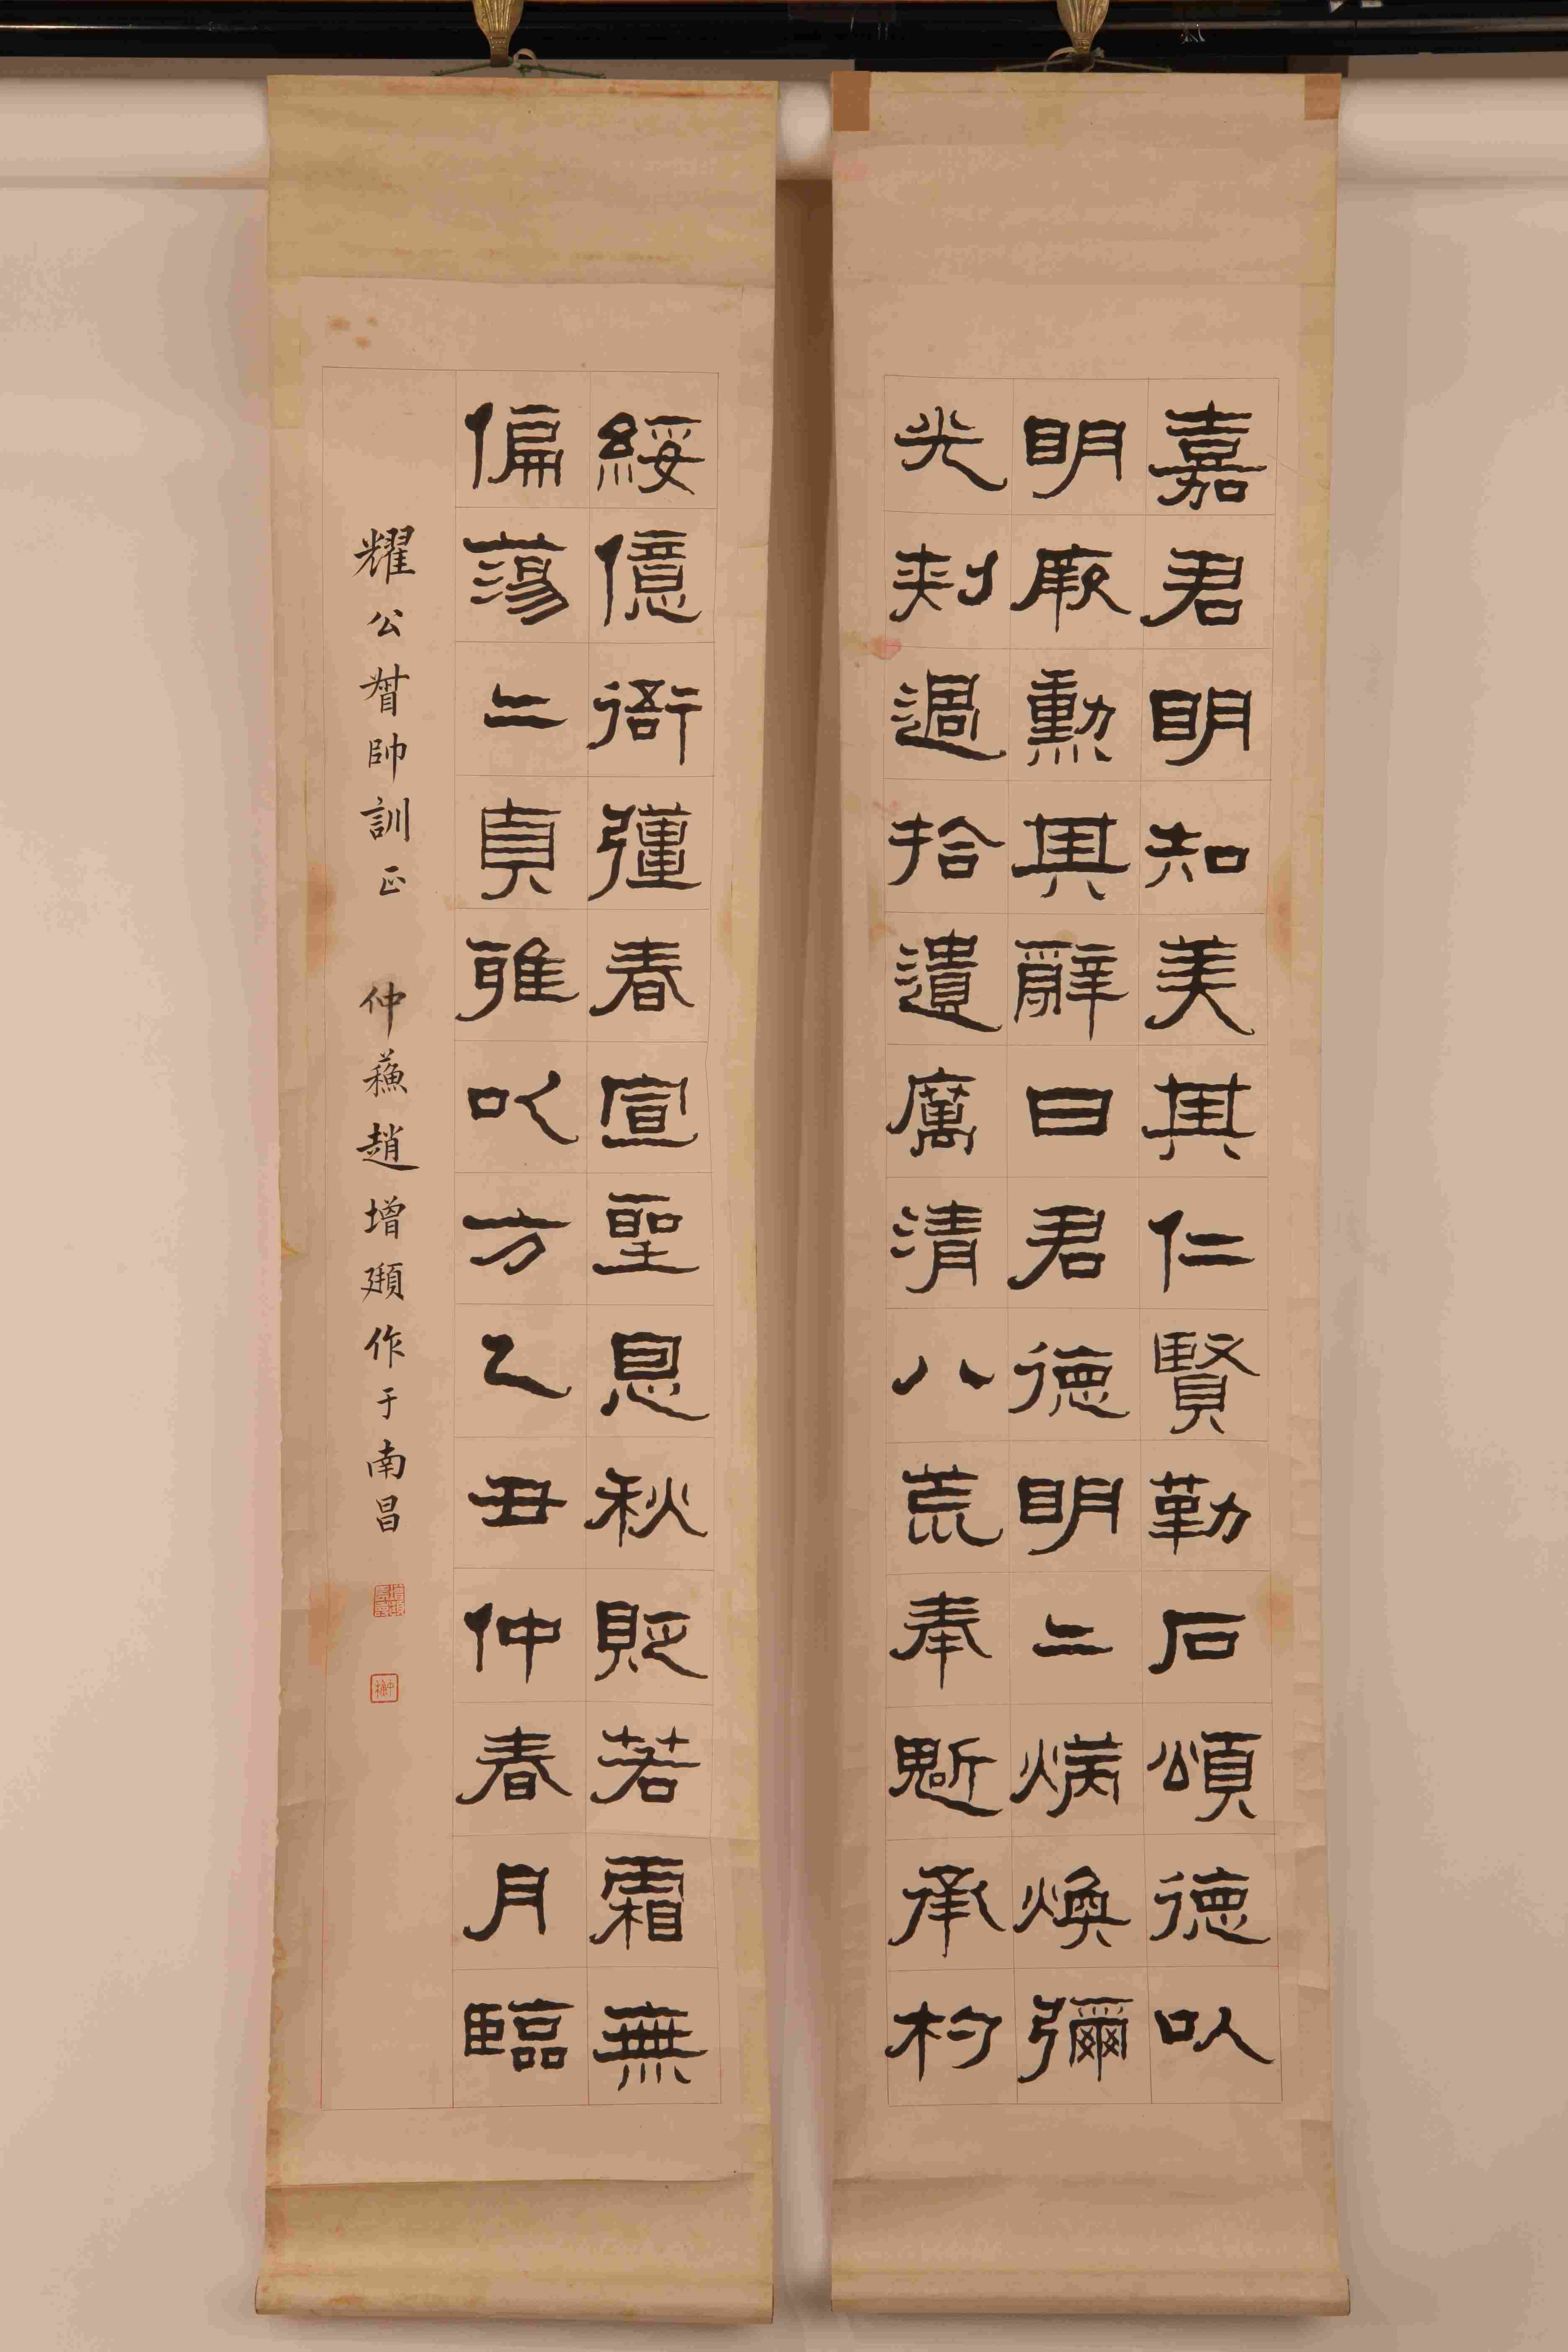 嘉君明知美其仁賢勒石頌德以
明厥勳其辭曰君德明二煥煥彌
光刺過拾遺厲清八荒奉魁承杓
綏億衙彊春宣聖恩秋貶若霜無
偏蕩二貞雅以方乙丑仲春月臨
耀公督帥訓正 仲蘓趙增 作于南昌